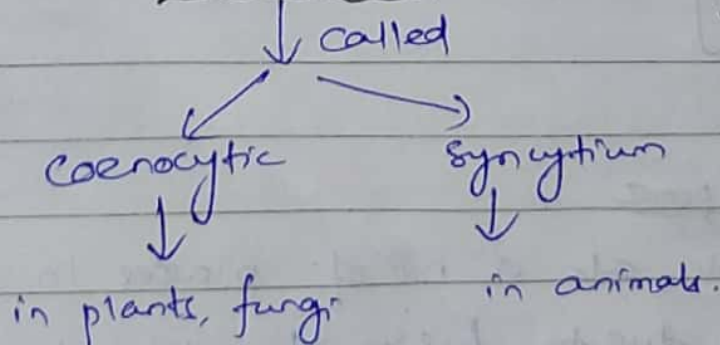 called
Coenocytic
Syncytium
in plants, fungi
in animals.